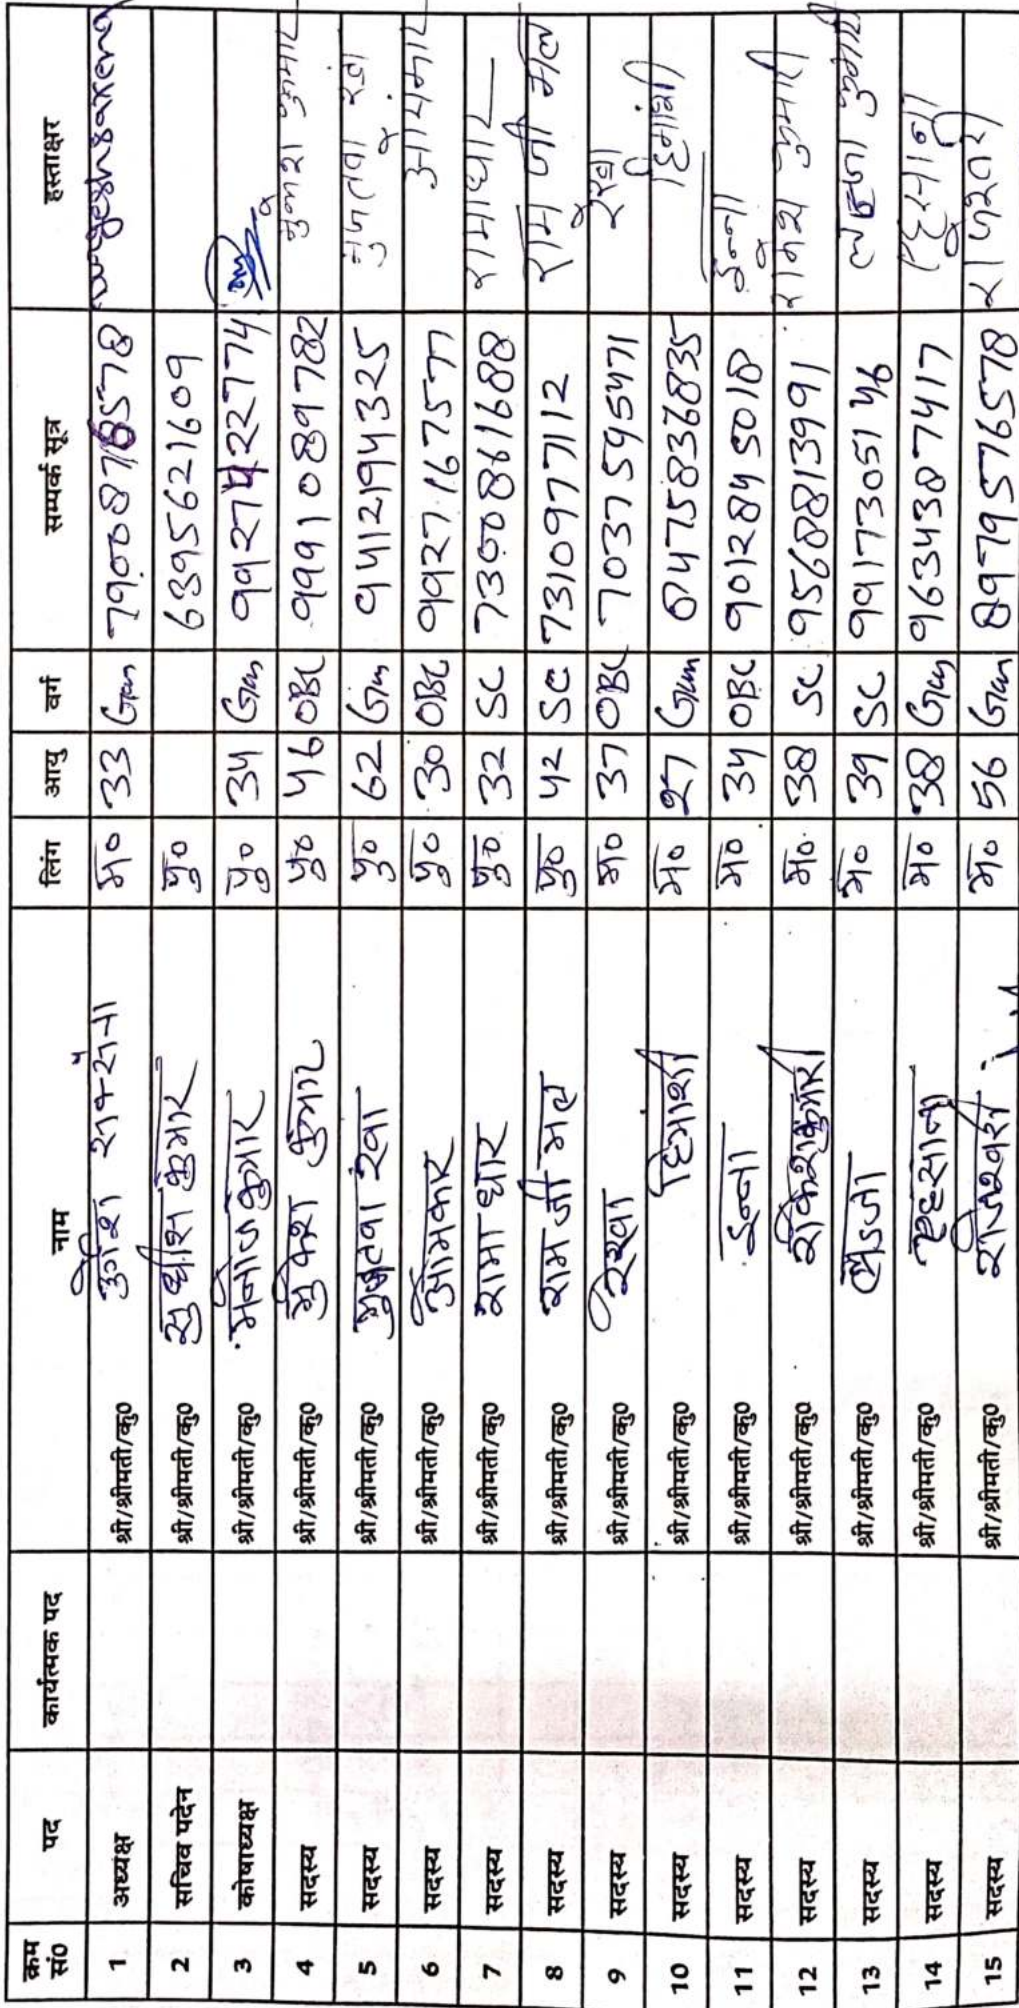 क्रम सं0 पद कार्यत्मक पद नाम लिंग आयु वर्ग सम्पर्क सूत्र हस्ताक्षर
1 अध्यक्ष श्री/श्रीमती/कु0 म0 33 Gen
2 सचिव पदेन श्री/श्रीमती/कु0 सुधीश कुमार पु0 6395621609
3 कोषाध्यक्ष श्री/श्रीमती/कु0 मनोज कुमार पु0 34 Gen 9927422774
4 सदस्य श्री/श्रीमती/कु0 मुकेश कुमार पु0 46 OBC 9991089782 मुकेश कुमार
5 सदस्य श्री/श्रीमती/कु0 पु0 62 Gen 9412194325
6 सदस्य श्री/श्रीमती/कु0 ओमकार पु0 30 OBC 9927167577 ओमकार
7 सदस्य श्री/श्रीमती/कु0 रामाधार पु0 32 SC 7300861688 रामाधार
8 सदस्य श्री/श्रीमती/कु0 रामजी मल पु0 42 SC 7310977112 राम जी मल
9 सदस्य श्री/श्रीमती/कु0 रेखा म0 37 OBC 7037595471 रेखा
10 सदस्य श्री/श्रीमती/कु0 हिमांशी म0 27 Gen 8475836835 हिमांशी
11 सदस्य श्री/श्रीमती/कु0 म0 34 OBC 9012845018
12 सदस्य श्री/श्रीमती/कु0 म0 38 SC 9568813991
13 सदस्य श्री/श्रीमती/कु0 म0 39 SC 9917305146
14 सदस्य श्री/श्रीमती/कु0 म0 38 Gen 9634387417
15 सदस्य श्री/श्रीमती/कु0 म0 56 Gen 8979576578